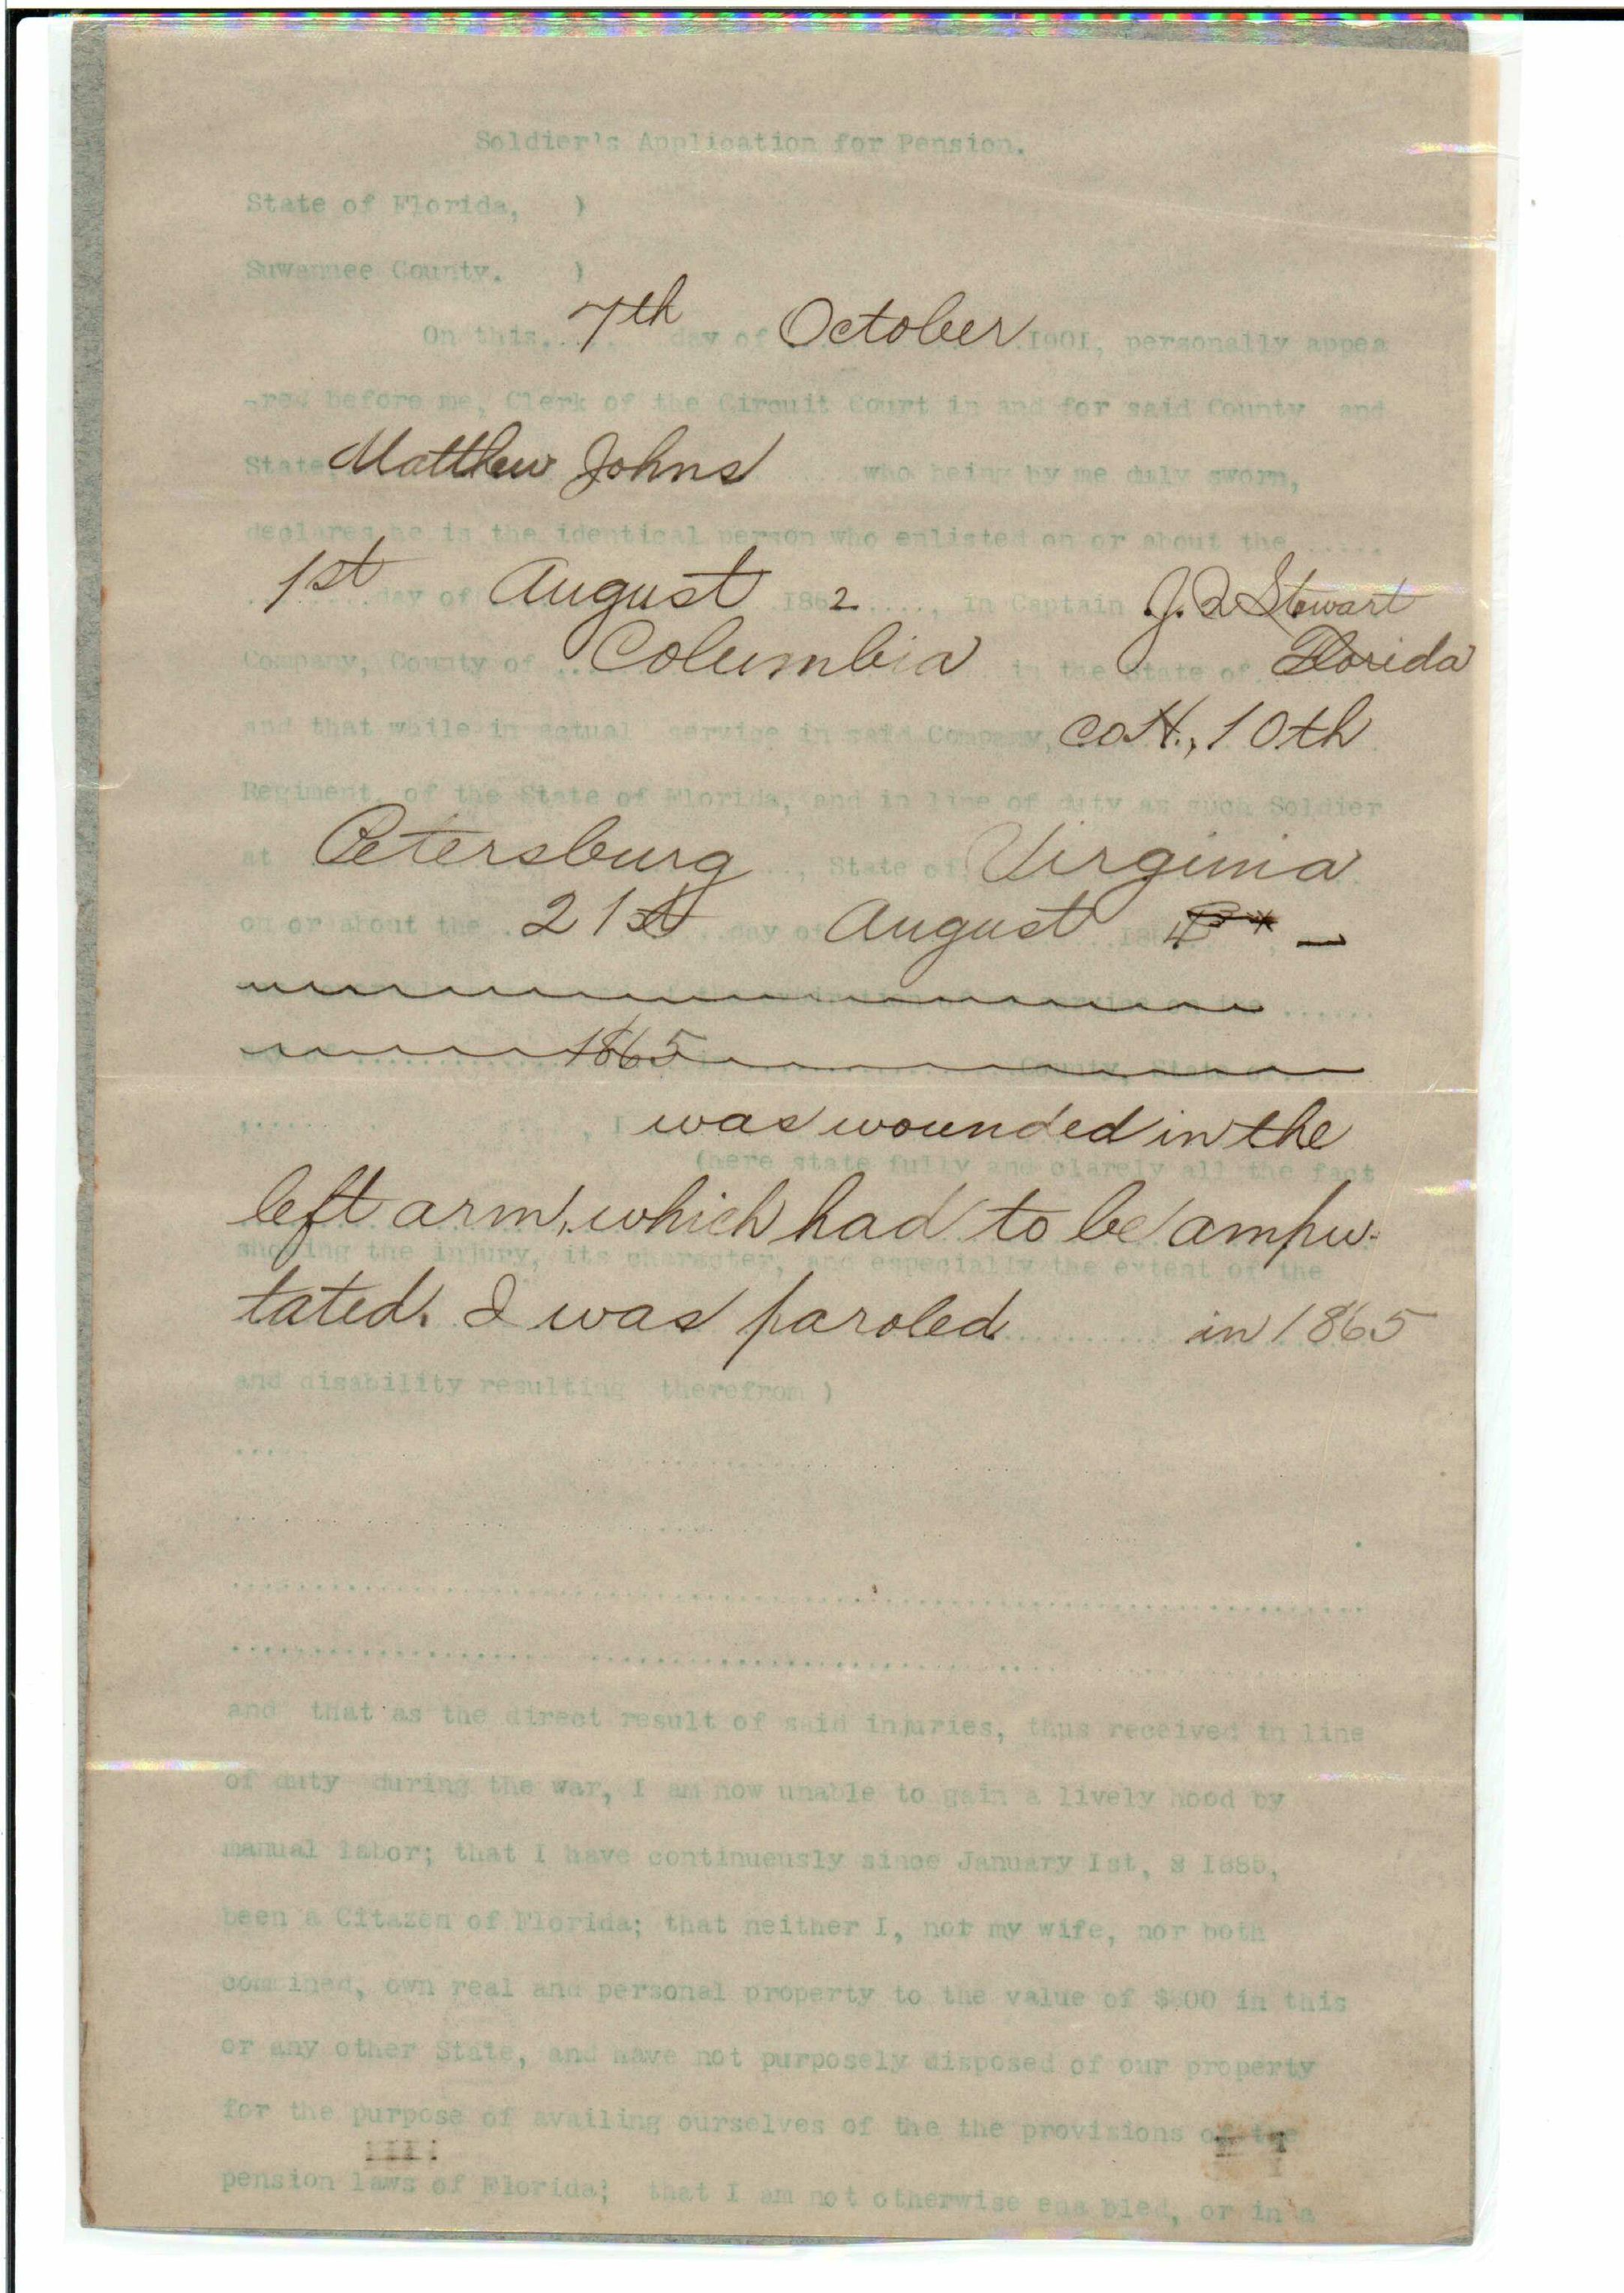 Soldier's Application for Pension.
State of Florida, )
Suwannee County. )
On this. 7th day of October 1901, personally appea
-red before me, Clerk of the Circuit Court in and for said County and
State Matthew Johns who being by me duly sworn,
declares he is the identical person who enlisted on or about the .....
1st day of August 1862 ....., in Captain J. Q Stewart
Company, County of .. Columbia in the State of Florida
and that while in actual service in said Company, Co H., 10th
Regiment, of the State of Florida, and in line of duty as such Soldier
at Petersburg ..., State of Virginia
on or about the . 21st ..day of August 186 4
1865
County, State
, I was wounded in the
(here state fully and clarely all the fact
left arm, which had to be ampu-
showing the injury, its character, and especially the extent of the
tated. I was paroled in 1865
and disability resulting therefrom )
and that as the direct result of said injuries, thus received in line
of duty during the war, I am now unable to gain a lively hood by
manual labor; that I have continuously since January Ist, 8 I885,
been a Citazen of Florida; that neither I, nor my wife, nor both
combined, own real and personal property to the value of in this
or any other State, and have not purposely disposed of our property
for the purpose of availing ourselves of the the provisions of the
pension laws of Florida; that I am not otherwise ena bled, or in a